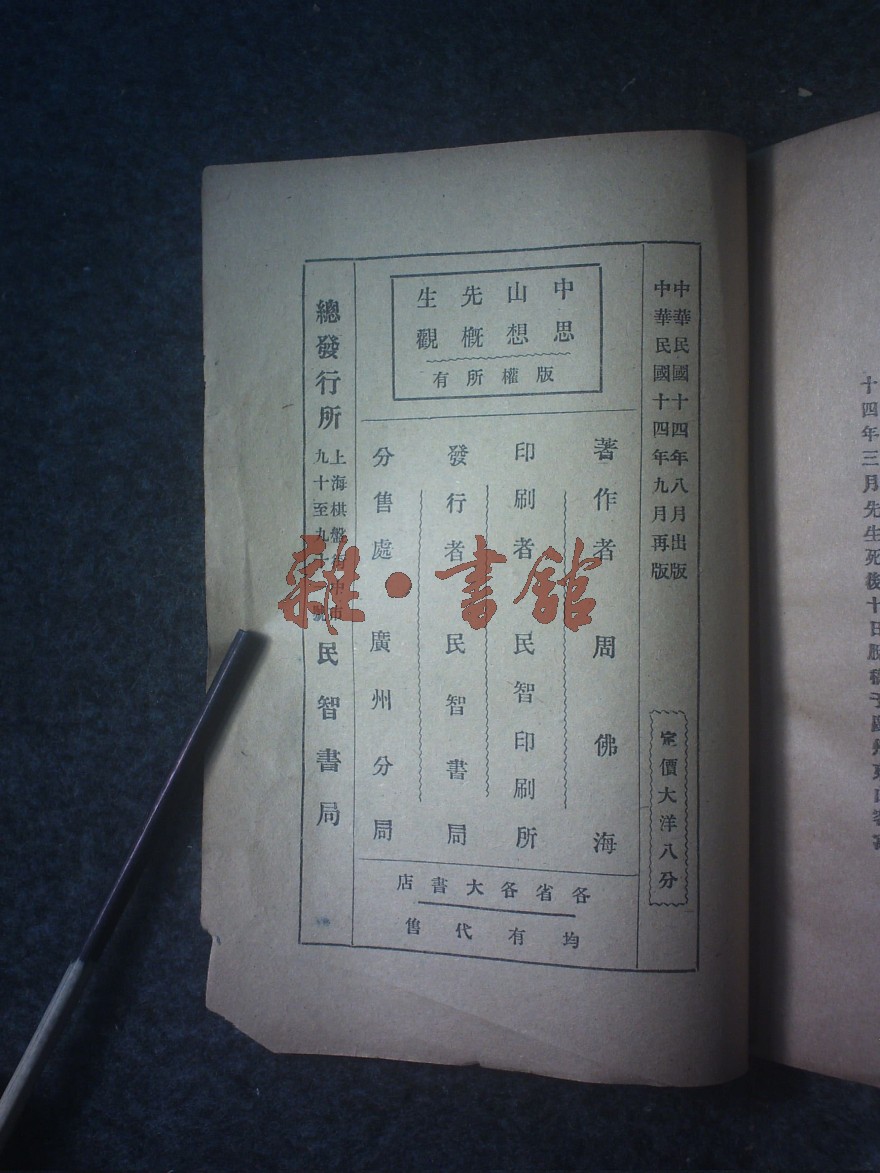 中華民國十四年八月出版
中華民國十四年九月再版
定價大洋八分
中山先生
思想概觀
版權所有
著作者 周佛海
印刷者 民智印刷所
發行者 民智書局
分售處 廣州分局
各省各大書店
均有代售
總發行所
上海棋盤街中市
九十至九十
民智書局
雜·書館
十四年三月先生死後十日脫稿于廣州東山